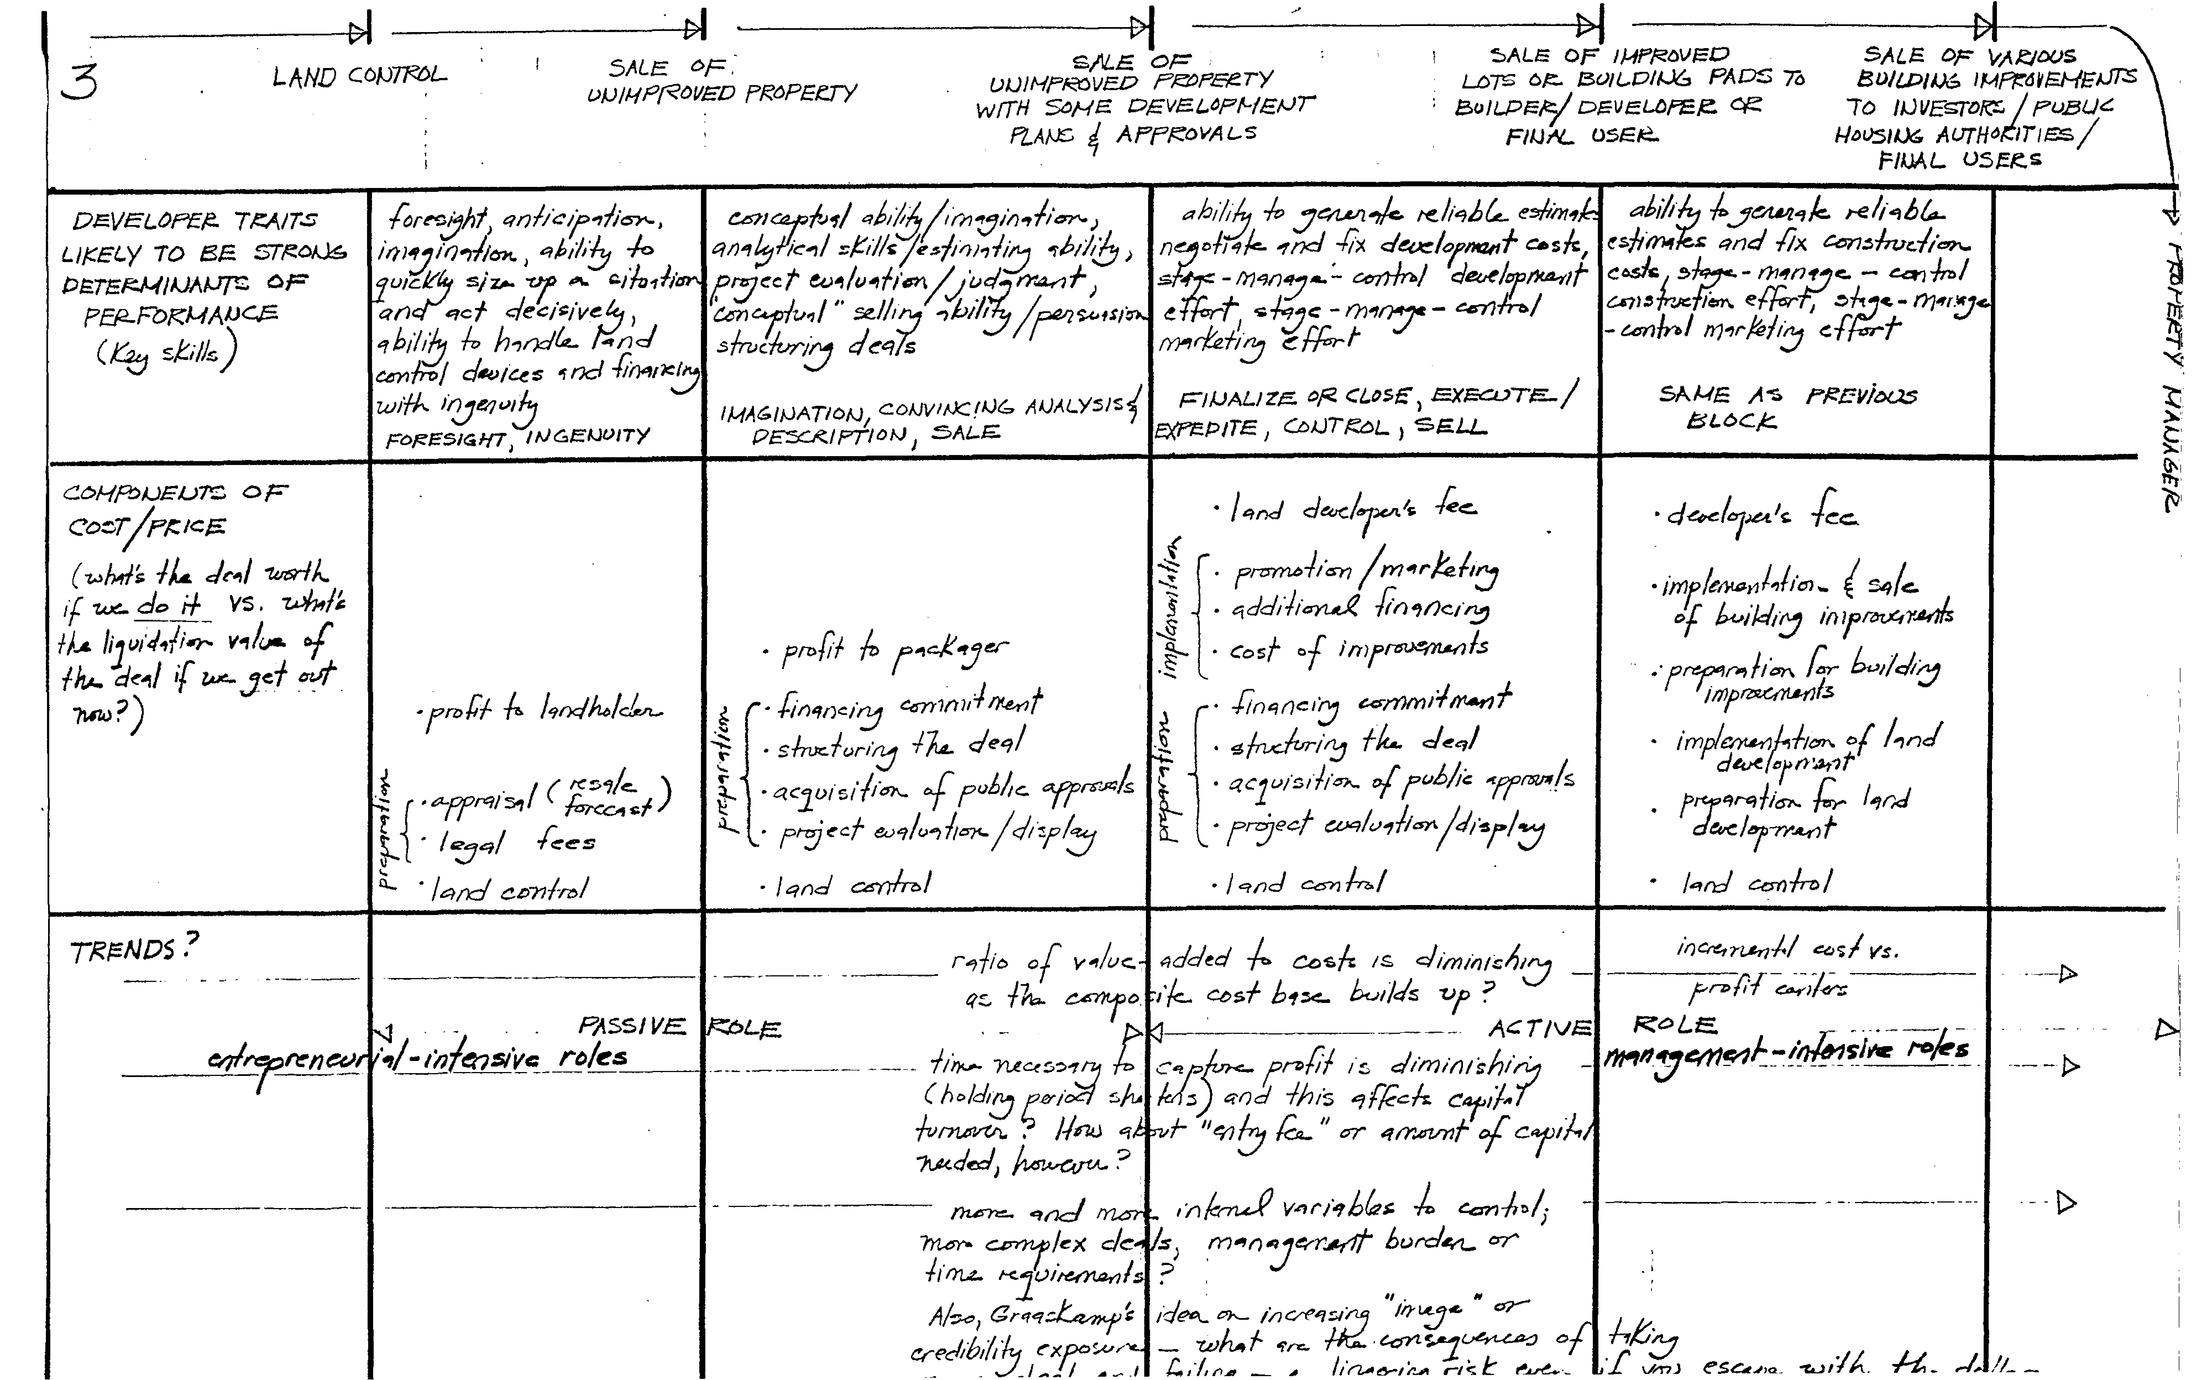 3
LAND CONTROL
SALE OF
UNIMPROVED PROPERTY
SALE OF
UNIMPROVED PROPERTY
WITH SOME DEVELOPMENT
PLANS & APPROVALS
SALE OF IMPROVED
LOTS OR BUILDING PADS TO
BUILDER/DEVELOPER OR
FINAL USER
SALE OF VARIOUS
BUILDING IMPROVEMENTS
TO INVESTORS/PUBLIC
HOUSING AUTHORITIES/
FINAL USERS
PROPERTY MANAGER
DEVELOPER TRAITS
LIKELY TO BE STRONG
DETERMINANTS OF
PERFORMANCE
(Key skills)
foresight, anticipation,
imagination, ability to
quickly size up a situation
and act decisively,
ability to handle land
control devices and financing
with ingenuity
FORESIGHT, INGENUITY
conceptual ability/imagination,
analytical skills/estimating ability,
project evaluation/judgment,
"conceptual" selling ability/persuasion
structuring deals
IMAGINATION, CONVINCING ANALYSIS &
DESCRIPTION, SALE
ability to generate reliable estimates
negotiate and fix development costs,
stage-manage-control development
effort, stage-manage-control
marketing effort
FINALIZE OR CLOSE, EXECUTE/
EXPEDITE, CONTROL, SELL
ability to generate reliable
estimates and fix construction
costs, stage-manage-control
construction effort, stage-manage
-control marketing effort
SAME AS PREVIOUS
BLOCK
COMPONENTS OF
COST/PRICE
(what's the deal worth
if we do it vs. what's
the liquidation value of
the deal if we get out
now?)
· profit to landholder
preparation
· appraisal (resale
forecast)
· legal fees
· land control
· profit to packager
preparation
· financing commitment
· structuring the deal
· acquisition of public approvals
· project evaluation/display
· land control
· land developer's fee
implementation
· promotion/marketing
· additional financing
· cost of improvements
preparation
· financing commitment
· structuring the deal
· acquisition of public approvals
· project evaluation/display
· land control
· developer's fee
· implementation & sale
of building improvements
· preparation for building
improvements
· implementation of land
development
· preparation for land
development
· land control
TRENDS?
ratio of value-added to costs is diminishing
as the composite cost base builds up?
incremental cost vs.
profit centers
PASSIVE ROLE
ACTIVE ROLE
entrepreneurial-intensive roles
management-intensive roles
time necessary to capture profit is diminishing
(holding period shortens) and this affects capital
turnover? How about "entry fee" or amount of capital
needed, however?
more and more internal variables to control;
more complex deals, management burden or
time requirements?
Also, Graaskamp's idea on increasing "image" or
credibility exposure — what are the consequences of taking
failing — a lingering risk even if you escape with the